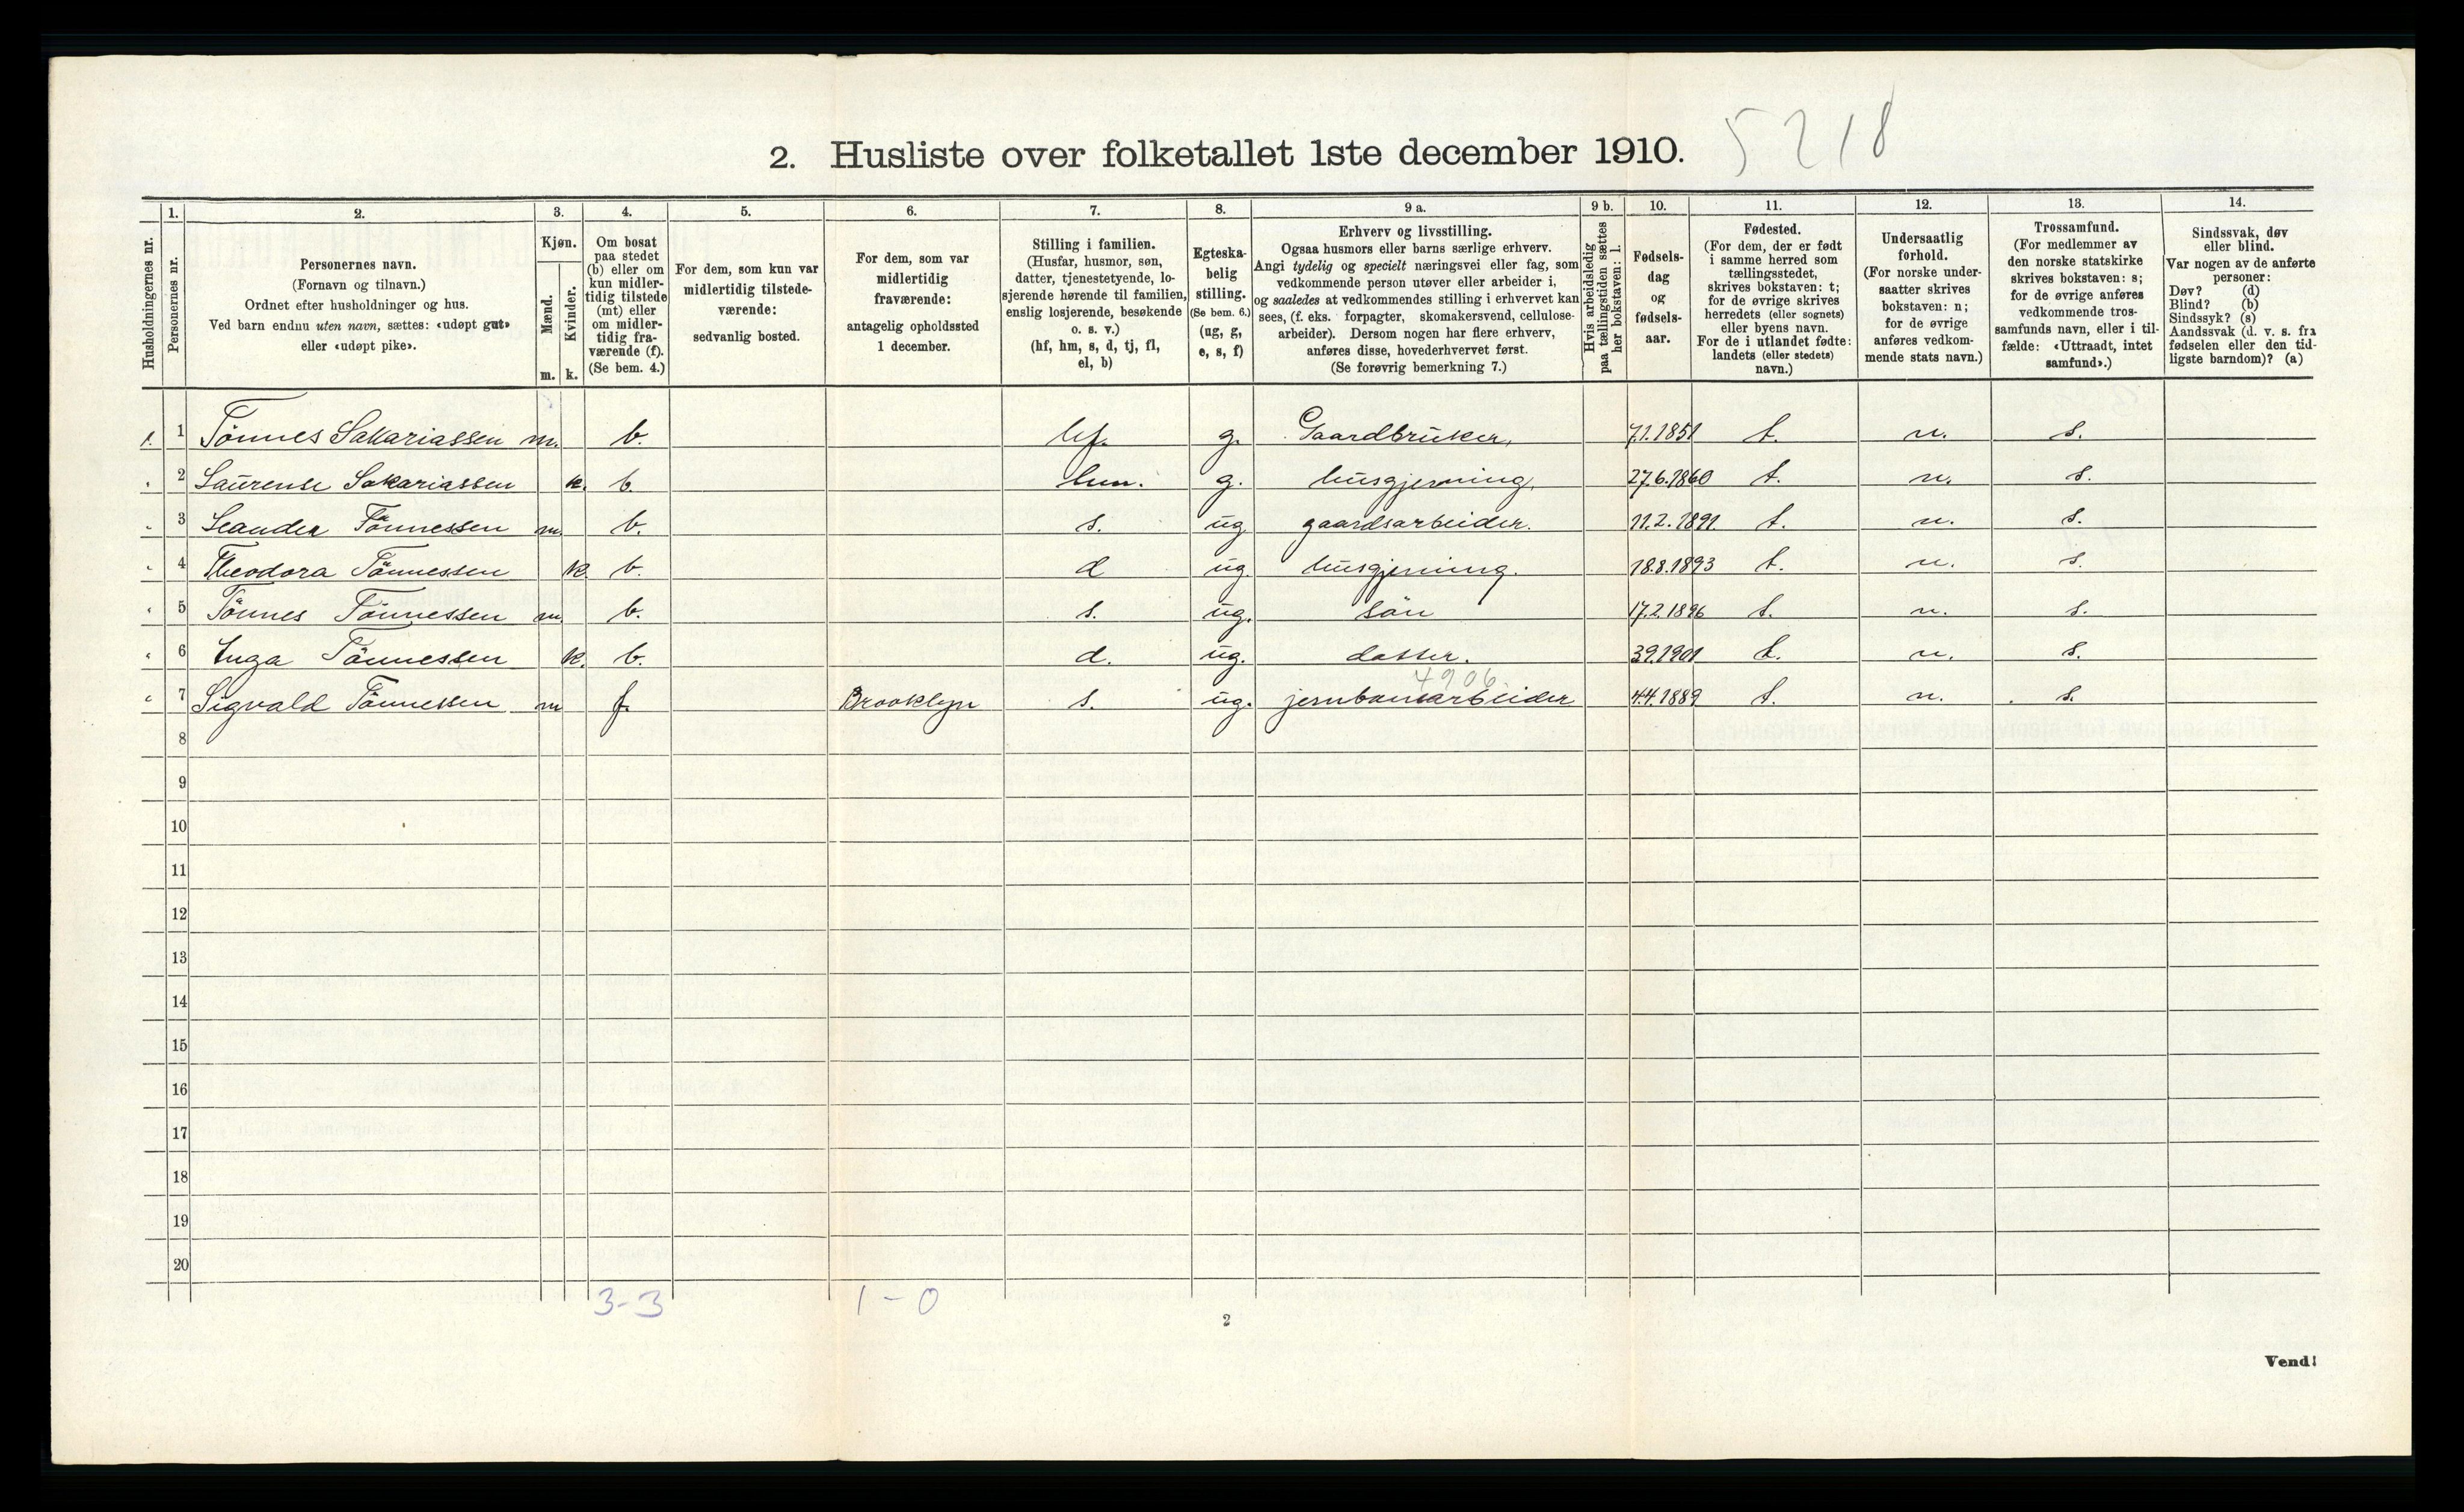 5218
2. Husliste over folketallet 1ste december 1910.
Husholdningernes nr.
1.
Personernes nr.
2.
Personernes navn.
(Fornavn og tilnavn.)
Ordnet efter husholdninger og hus.
Ved barn endnu uten navn, sættes: «udøpt gut»
eller «udøpt pike».
3.
Kjøn.
Mænd.
Kvinder.
m. k.
4.
Om bosat
paa stedet
(b) eller om
kun midler-
tidig tilstede
(mt) eller
om midler-
tidig fra-
værende (f).
(Se bem. 4.)
5.
For dem, som kun var
midlertidig tilstede-
værende:
sedvanlig bosted.
6.
For dem, som var
midlertidig
fraværende:
antagelig opholdssted
1 december.
7.
Stilling i familien.
(Husfar, husmor, søn,
datter, tjenestetyende, lo-
sjerende hørende til familien,
enslig losjerende, besøkende
o. s. v.)
(hf, hm, s, d, tj, fl,
el, b)
8.
Egteska-
belig
stilling.
(Se bem. 6.)
(ug, g,
e, s, f)
9 a.
Erhverv og livsstilling.
Ogsaa husmors eller barns særlige erhverv.
Angi tydelig og specielt næringsvei eller fag, som
vedkommende person utøver eller arbeider i,
og saaledes at vedkommendes stilling i erhvervet kan
sees, (f. eks. forpagter, skomakersvend, cellulose-
arbeider). Dersom nogen har flere erhverv,
anføres disse, hovederhvervet først.
(Se forøvrig bemerkning 7.)
9 b.
Hvis arbeidsledig
paa tællingstiden sættes
her bokstaven: l.
10.
Fødsels-
dag
og
fødsels-
aar.
11.
Fødested.
(For dem, der er født
i samme herred som
tællingsstedet,
skrives bokstaven: t;
for de øvrige skrives
herredets (eller sognets)
eller byens navn.
For de i utlandet fødte:
landets (eller stedets)
navn.)
12.
Undersaatlig
forhold.
(For norske under-
saatter skrives
bokstaven: n;
for de øvrige
anføres vedkom-
mende stats navn.)
13.
Trossamfund.
(For medlemmer av
den norske statskirke
skrives bokstaven: s;
for de øvrige anføres
vedkommende tros-
samfunds navn, eller i til-
fælde: «Uttraadt, intet
samfund».)
14.
Sindssvak, døv
eller blind.
Var nogen av de anførte
personer:
Døv? (d)
Blind? (b)
Sindssyk? (s)
Aandssvak (d. v. s. fra
fødselen eller den tid-
ligste barndom)? (a)
1. 1 Tönnes Sakariassen m. b. hf. g. Gaardbruker, 7.1.1851 t. n. s.
2 Laurense Sakariassen k. b. hm. g. husgjerning, 27.6.1860 t. n. s.
3 Leander Tönnessen m. b. s. ug. gaardsarbeider. 11.2.1891. t. n. s.
4 Theodora Tönnessen k. b. d ug. husgjerning. 18.8.1893 t. n. s.
5 Tönnes Tönnessen m. b. s. ug. sön 17.2.1896 t. n. s.
6 Inga Tönnessen k. b. d. ug. datter. 3.9.1901 t. n. s.
4906
7 Sigvald Tönnessen m f. Brooklyn s. ug. jernbanearbeider 4.4.1889 t. n. s.
8
9
10
11
12
13
14
15
16
17
18
19
20
3-3 1-0
2
Vend!